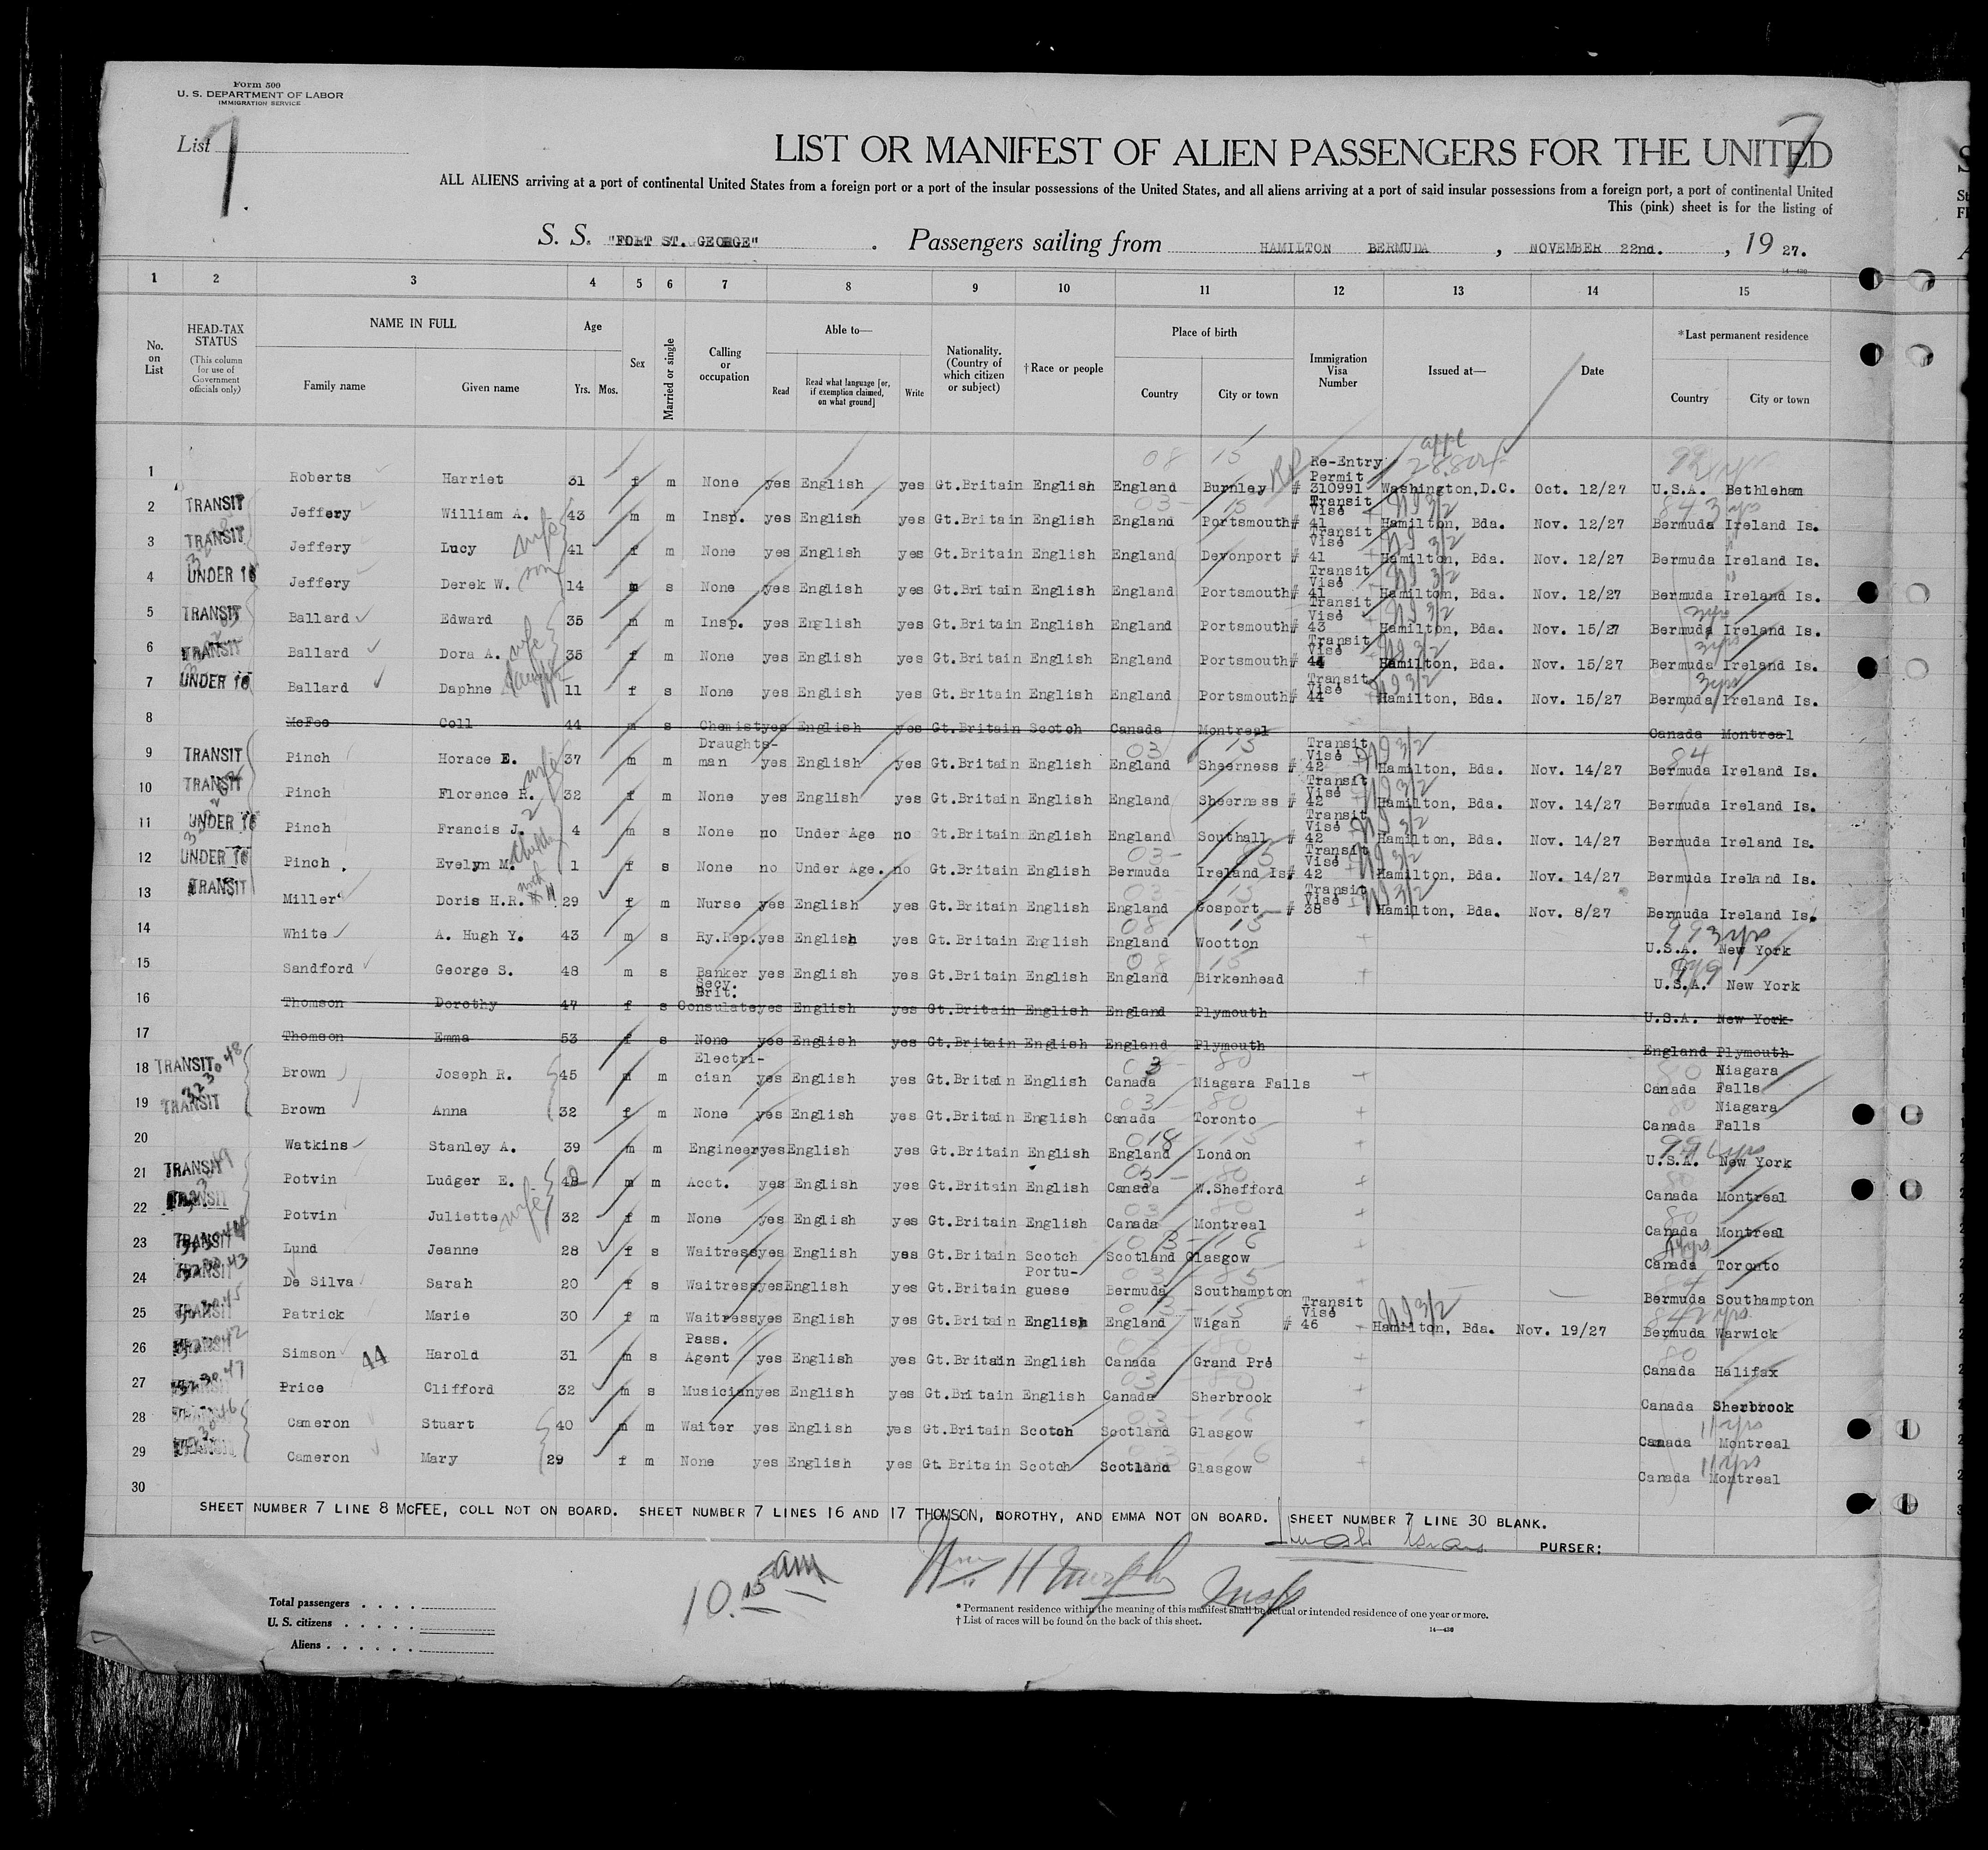 Form 500
U. S. DEPARTMENT OF LABOR
IMMIGRATION SERVICE
List 7
7
LIST OR MANIFEST OF ALIEN PASSENGERS FOR THE UNITED
ALL ALIENS arriving at a port of continental United States from a foreign port or a port of the insular possessions of the United States, and all aliens arriving at a port of said insular possessions from a foreign port, a port of continental United
This (pink) sheet is for the listing of
S. S. "FORT ST. GEORGE" . Passengers sailing from HAMILTON BERMUDA , NOVEMBER 22nd. , 19 27.
14—430
1 2 3 4 5 6 7 8 9 10 11 12 13 14 15
No. on List
HEAD-TAX STATUS (This column for use of Government officials only)
NAME IN FULL Family name Given name
Age Yrs. Mos.
Sex
Married or single
Calling or occupation
Able to— Read Read what language [or, if exemption claimed, on what ground] Write
Nationality. (Country of which citizen or subject)
†Race or people
Place of birth Country City or town
Immigration Visa Number
Issued at—
Date
*Last permanent residence Country City or town
1 Roberts Harriet 31 f m None yes English yes Gt.Britain English England Burnley Re-Entry Permit # 310991 Washington,D.C. Oct. 12/27 U.S.A. Bethlehem
2 TRANSIT Jeffery William A. 43 m m Insp. yes English yes Gt.Britain English England Portsmouth Transit Visé # 41 Hamilton, Bda. Nov. 12/27 Bermuda Ireland Is.
3 TRANSIT Jeffery Lucy wife 41 f m None yes English yes Gt.Britain English England Devonport Transit Visé # 41 Hamilton, Bda. Nov. 12/27 Bermuda Ireland Is.
4 UNDER 16 Jeffery Derek W. son 14 m s None yes English yes Gt.Britain English England Portsmouth Transit Visé # 41 Hamilton, Bda. Nov. 12/27 Bermuda Ireland Is.
5 TRANSIT Ballard Edward 35 m m Insp. yes English yes Gt.Britain English England Portsmouth Transit Visé # 43 Hamilton, Bda. Nov. 15/27 Bermuda Ireland Is.
6 TRANSIT Ballard Dora A. wife 35 f m None yes English yes Gt.Britain English England Portsmouth Transit Visé # 44 Hamilton, Bda. Nov. 15/27 Bermuda Ireland Is.
7 UNDER 16 Ballard Daphne 11 f s None yes English yes Gt.Britain English England Portsmouth Transit Visé # 44 Hamilton, Bda. Nov. 15/27 Bermuda Ireland Is.
8 McFee Coll 44 m s Chemist yes English yes Gt.Britain Scotch Canada Montreal Canada Montreal
9 TRANSIT Pinch Horace E. 37 m m Draughts-man yes English yes Gt.Britain English England Sheerness Transit Visé # 42 Hamilton, Bda. Nov. 14/27 Bermuda Ireland Is.
10 TRANSIT Pinch Florence R. wife 32 f m None yes English yes Gt.Britain English England Sheerness Transit Visé # 42 Hamilton, Bda. Nov. 14/27 Bermuda Ireland Is.
11 UNDER 16 Pinch Francis J. 4 m s None no Under Age no Gt.Britain English England Southall Transit Visé # 42 Hamilton, Bda. Nov. 14/27 Bermuda Ireland Is.
12 UNDER 16 Pinch Evelyn M. 1 f s None no Under Age. no Gt.Britain English Bermuda Ireland Is. Transit Visé # 42 Hamilton, Bda. Nov. 14/27 Bermuda Ireland Is.
13 TRANSIT Miller Doris H.R. 29 f m Nurse yes English yes Gt.Britain English England Gosport Transit Visé # 38 Hamilton, Bda. Nov. 8/27 Bermuda Ireland Is.
14 White A. Hugh Y. 43 m s Ry.Rep. yes English yes Gt.Britain English England Wootton U.S.A. New York
15 Sandford George S. 48 m s Banker yes English yes Gt.Britain English England Birkenhead U.S.A. New York
16 Thomson Dorothy 47 f s Secy. Brit. Consulate yes English yes Gt.Britain English England Plymouth U.S.A. New York
17 Thomson Emma 53 f s None yes English yes Gt.Britain English England Plymouth England Plymouth
18 TRANSIT Brown Joseph R. 45 m m Electri-cian yes English yes Gt.Britain English Canada Niagara Falls Canada Niagara Falls
19 TRANSIT Brown Anna 32 f m None yes English yes Gt.Britain English Canada Toronto Canada Niagara Falls
20 Watkins Stanley A. 39 m m Engineer yes English yes Gt.Britain English England London U.S.A. New York
21 TRANSIT Potvin Ludger E. 48 m m Acct. yes English yes Gt.Britain English Canada W.Shefford Canada Montreal
22 TRANSIT Potvin Juliette wife 32 f m None yes English yes Gt.Britain English Canada Montreal Canada Montreal
23 TRANSIT Lund Jeanne 28 f s Waitress yes English yes Gt.Britain Scotch Scotland Glasgow Canada Toronto
24 TRANSIT De Silva Sarah 20 f s Waitress yes English yes Gt.Britain Portu-guese Bermuda Southampton Bermuda Southampton
25 TRANSIT Patrick Marie 30 f m Waitress yes English yes Gt.Britain English England Wigan Transit Visé # 46 Hamilton, Bda. Nov. 19/27 Bermuda Warwick
26 TRANSIT Simson 44 Harold 31 m s Pass. Agent yes English yes Gt.Britain English Canada Grand Pré Canada Halifax
27 Price Clifford 32 m s Musician yes English yes Gt.Britain English Canada Sherbrook Canada Sherbrook
28 Cameron Stuart 40 m m Waiter yes English yes Gt.Britain Scotch Scotland Glasgow Canada Montreal
29 Cameron Mary 29 f m None yes English yes Gt.Britain Scotch Scotland Glasgow Canada Montreal
30
SHEET NUMBER 7 LINE 8 MCFEE, COLL NOT ON BOARD. SHEET NUMBER 7 LINES 16 AND 17 THOMSON, DOROTHY, AND EMMA NOT ON BOARD. SHEET NUMBER 7 LINE 30 BLANK.
PURSER:
10.15 am
Wm H Murphy Insp
Total passengers . . . .
U. S. citizens . . . . .
Aliens . . . . . .
* Permanent residence within the meaning of this manifest shall be actual or intended residence of one year or more.
† List of races will be found on the back of this sheet.
14—430